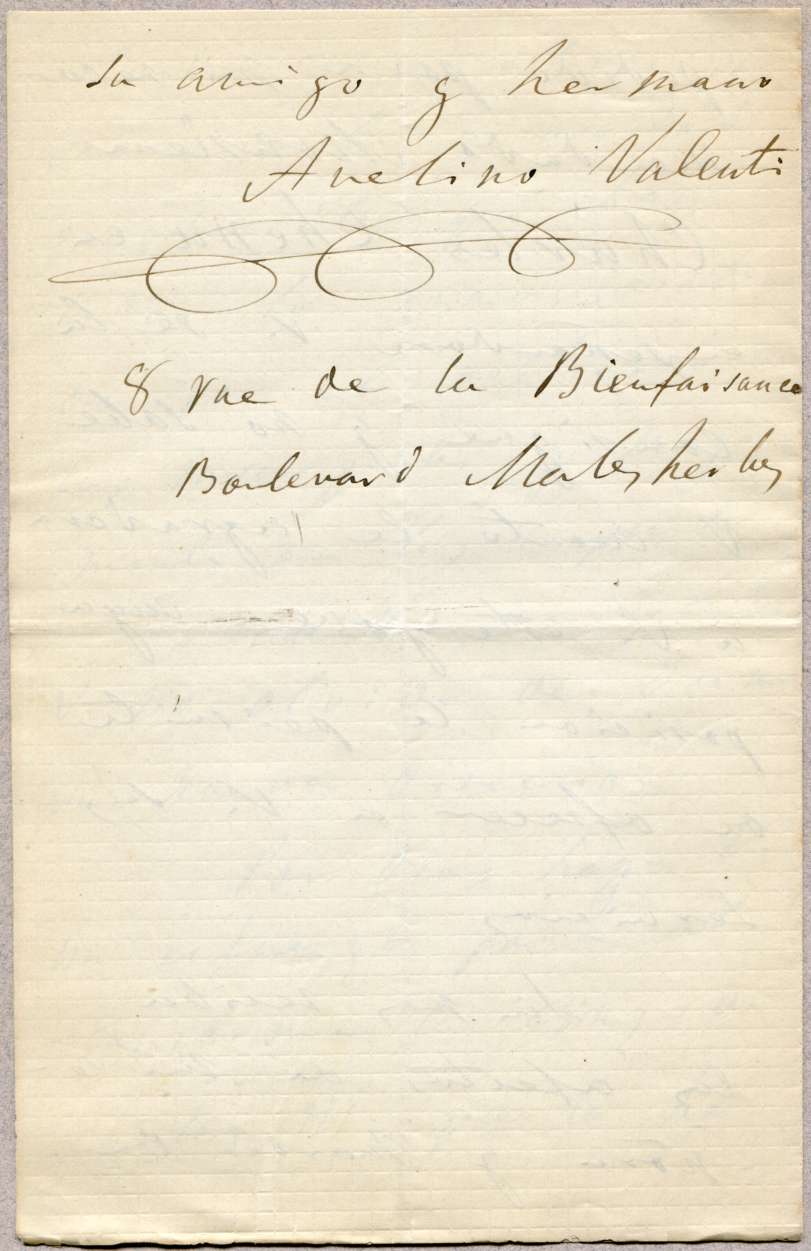 Su amigo y hermano
Avelino Valenti
8 rue de la Bienfaisance
Boulevard Malesherbes